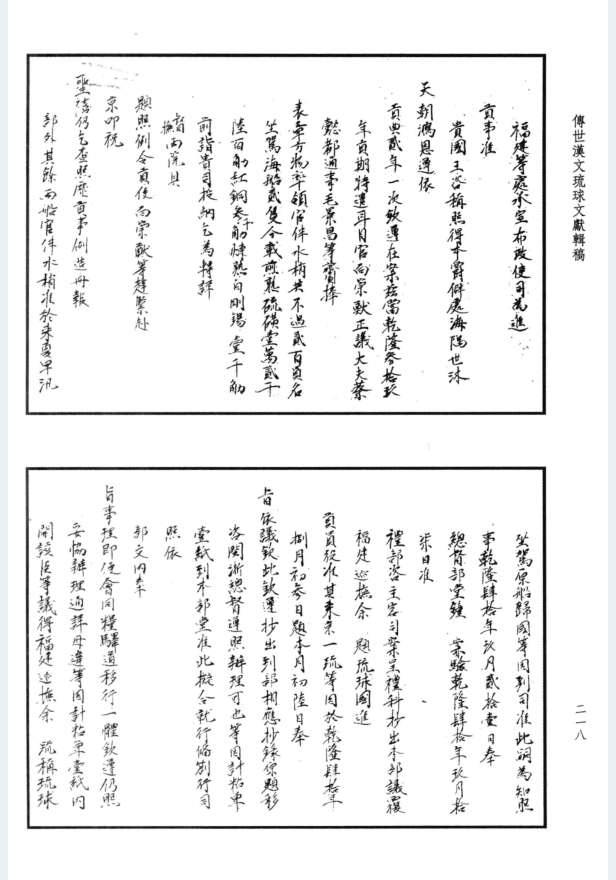 傳世漢文琉球文獻輯稿
福建等處承宣布政使司為進
貢事准
貴國王咨稱照得本爵僻處海隅世沐
天朝鴻恩遵依
貢典貳年一次欽遵在案茲當乾隆叁拾玖
年貢期特遣耳目官向崇猷正議大夫蔡
懿都通事毛景昌等齎捧
表章方物率領官伴水梢共不過貳百員名
坐駕海船貳隻分載煎熟硫磺壹萬貳千
陸百觔紅銅叁千觔煉熟白剛錫壹千觔
前詣貴司投納乞為轉詳
督撫兩院具
題照例令貢使向崇猷等趕緊赴
京叩祝
聖禧仍乞查照歷貢事例造冊報
部外其餘兩船官伴水梢准於來夏早汛
坐駕原船歸國等因到司准此嗣為知照
事乾隆肆拾年玖月貳拾壹日奉
總督部堂鐘 案驗乾隆肆拾年玖月拾
柒日准
禮部咨主客司案呈禮科抄出本部議覆
福建巡撫余 題琉球國進
貢員役准其來京一疏等因於乾隆肆拾年
捌月初參日題本月初陸日奉
旨依議欽此欽遵抄出到部相應抄錄原題移
咨閩浙總督遵照辦理可也等因計粘單
壹紙到本部堂准此擬合就行備劄行司
照依
部文內奉
旨事理即便會同糧驛道移行一體欽遵仍照
妥協辦理通詳毋違等因計粘單壹紙內
開該臣等議得福建巡撫余 疏稱琉球
二一八